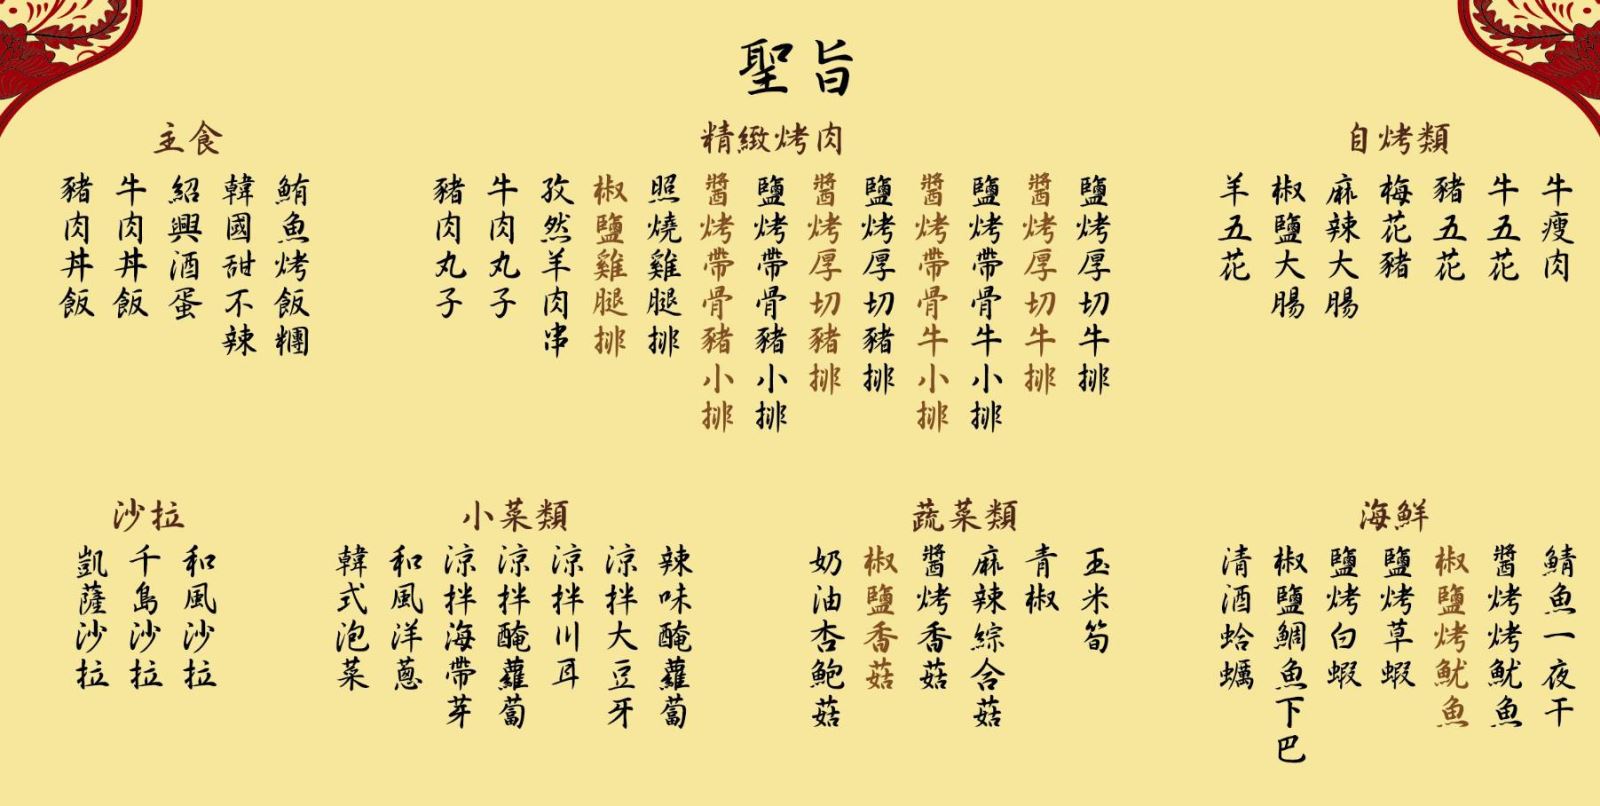 聖旨
自烤類
牛瘦肉
牛五花
豬五花
梅花豬
麻辣大腸
椒鹽大腸
羊五花
精緻烤肉
鹽烤厚切牛排
醬烤厚切牛排
鹽烤帶骨牛小排
醬烤帶骨牛小排
鹽烤厚切豬排
醬烤厚切豬排
鹽烤帶骨豬小排
醬烤帶骨豬小排
照燒雞腿排
椒鹽雞腿排
孜然羊肉串
牛肉丸子
豬肉丸子
主食
鮪魚烤飯糰
韓國甜不辣
紹興酒蛋
牛肉丼飯
豬肉丼飯
海鮮
鯖魚一夜干
醬烤烤魷魚
椒鹽烤魷魚
鹽烤草蝦
鹽烤白蝦
椒鹽鯛魚下巴
清酒蛤蠣
蔬菜類
玉米筍
青椒
麻辣綜合菇
醬烤香菇
椒鹽香菇
奶油杏鮑菇
小菜類
辣味醃蘿蔔
涼拌大豆牙
涼拌川耳
涼拌醃蘿蔔
涼拌海帶芽
和風洋蔥
韓式泡菜
沙拉
和風沙拉
千島沙拉
凱薩沙拉